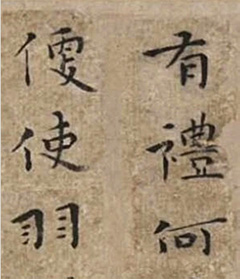 有禮何
使羽